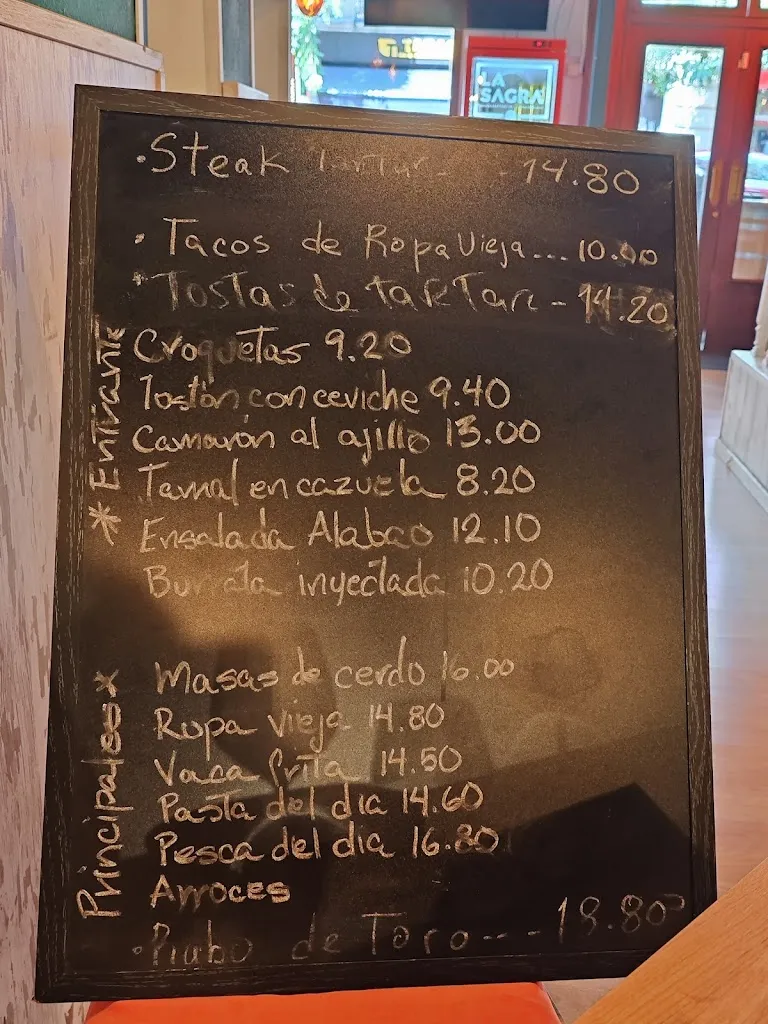 LA
SAGRA
• Steak Tartar - - 14.80
• Tacos de Ropa Vieja... 10.00
• Tostas de tartar - 14.20
* Entrante
Croquetas 9.20
Tostón con ceviche 9.40
Camarón al ajillo 13.00
Tamal en cazuela 8.20
Ensalada Alabao 12.10
Burrata inyectada 10.20
Principales *
Masas de cerdo 16.00
Ropa vieja 14.80
Vaca frita 14.50
Pasta del dia 14.60
Pesca del dia 16.80
Arroces
de Toro - - - 18.80